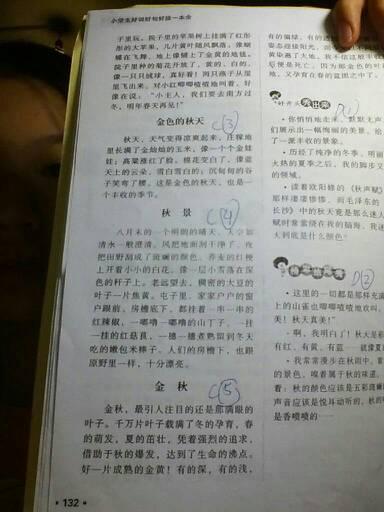 小学生好词好句好段一本全
子里玩。院子里的苹果树上挂满了红彤
彤的大苹果，几片黄叶随风飘落，像蝴
蝶在飞舞，地上像铺上了金黄的地毯。
院子里种的菊花开放了，黄的、白的，
像一只只绒球，真好看！两只燕子从屋
里飞出来，对小红唧唧喳喳地叫着，好
像在说：“小主人，我们要去南方过
冬，明年春天再见！”
金色的秋天
C(3)
秋天，天气变得凉爽起来。庄稼地
里长满了金灿灿的玉米，像一个个金娃
娃；高粱涨红了脸，棉花变白了，像蓝
天上的云朵，雪白雪白的；沉甸甸的谷
子笑弯了腰。这是金色的秋天，也是一
个丰收的季节。
秋景
C(4)
八月末的一个明朗的晴天，天空如
清水一般澄清。风把地面刮干净了，夜
把田野刮成了斑斓的颜色。荞麦的红梗
上开着小小的白花，像一层小雪落在深
色的秆子上。老远望去，稠密的大豆的
叶子一片焦黄。屯子里，家家户户的窗
户跟前，房檐底下，都挂着一串一串的
红辣椒，一嘟噜一嘟噜的山丁子，一挂
一挂的红菇茑，一穗一穗煮熟留到冬天
吃的嫩包米棒子。人们的房檐下，也跟
原野里一样，十分漂亮。
金秋
C(5)
金秋，最引人注目的还是那满眼的
叶子。千万片叶子载满了冬的孕育，春
的萌发，夏的茁壮，凭着强烈的追求，
借助于秋的爆发，达到了生命的沸点。
好一片成熟的金黄！有的深，有的浅，
132
有的偏绿，有的
姿态迎接阳光，
后便是死亡。因为那金色的叶
地，又孕育在春的蓝图之中了。
D(1)
·你悄悄地走来，默默无声
们展示出一幅绚丽的画景，给
了一派丰收的景象。
·历经了纯净的冬季、明丽
火热的夏季之后，我的脚步又
的领域。
·读着欧阳修的《秋声赋》
那样凄凄惨惨，而毛泽东的
长沙》中的秋天竟是那么迷人
赋时常萦绕在我的脑海，我迷
天到底是什么颜色？
D(2)
·这里的一切都是那样充满
上的山雀也唧唧喳喳地欢叫，
美！秋天真美！”
·啊，我明白了！秋天是彩
有红、有黄、有蓝……就像夏
·我常常漫步在秋雨中，看
的景色，嗅着属于秋的味道。
着：秋的颜色应该是五彩斑斓
声音应该是悦耳动听的，秋的
是香喷喷的……